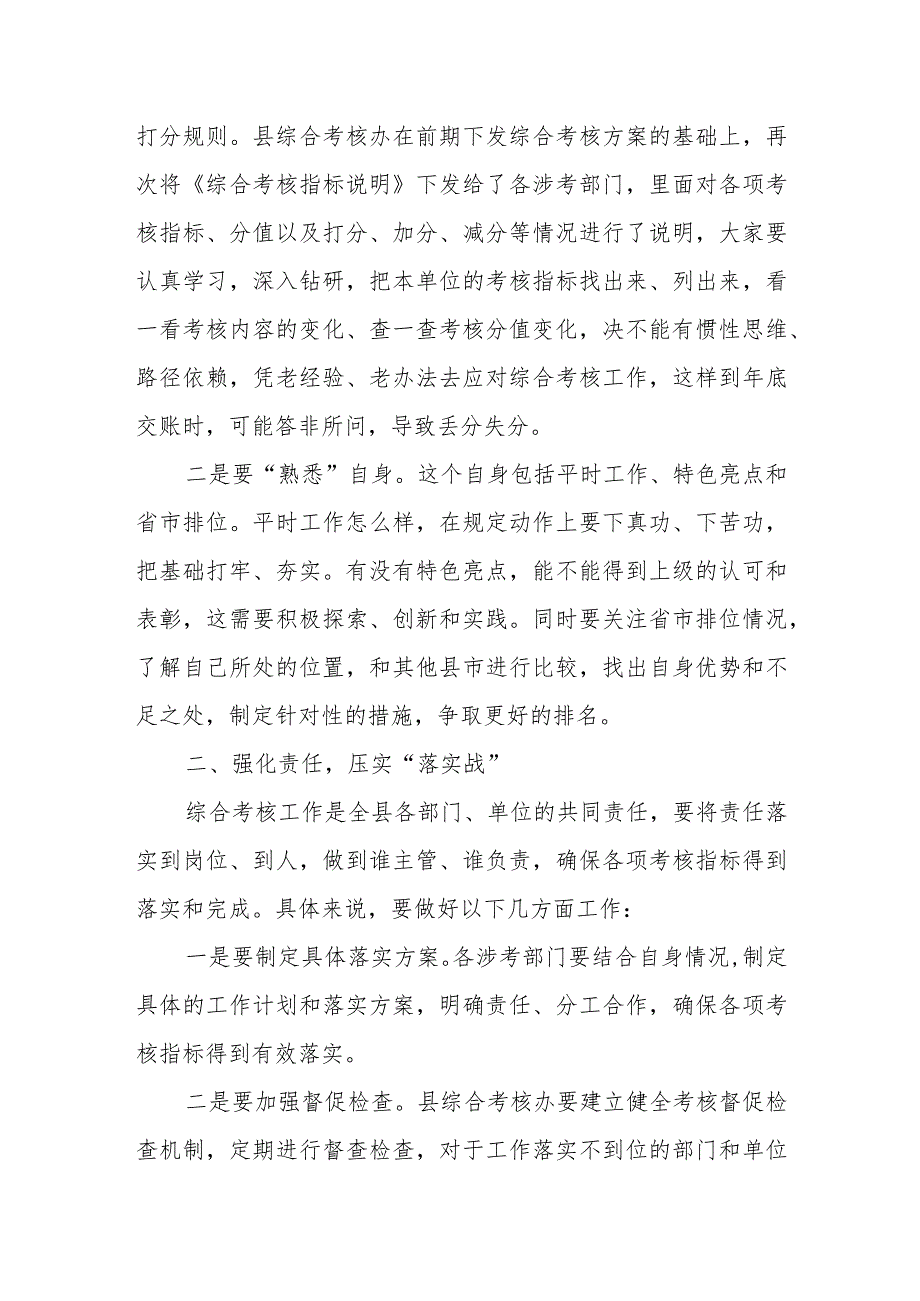 打分规则。县综合考核办在前期下发综合考核方案的基础上，再
次将《综合考核指标说明》下发给了各涉考部门，里面对各项考
核指标、分值以及打分、加分、减分等情况进行了说明，大家要
认真学习，深入钻研，把本单位的考核指标找出来、列出来，看
一看考核内容的变化、查一查考核分值变化，决不能有惯性思维、
路径依赖，凭老经验、老办法去应对综合考核工作，这样到年底
交账时，可能答非所问，导致丢分失分。
二是要“熟悉”自身。这个自身包括平时工作、特色亮点和
省市排位。平时工作怎么样，在规定动作上要下真功、下苦功，
把基础打牢、夯实。有没有特色亮点，能不能得到上级的认可和
表彰，这需要积极探索、创新和实践。同时要关注省市排位情况，
了解自己所处的位置，和其他县市进行比较，找出自身优势和不
足之处，制定针对性的措施，争取更好的排名。
二、强化责任，压实“落实战”
综合考核工作是全县各部门、单位的共同责任，要将责任落
实到岗位、到人，做到谁主管、谁负责，确保各项考核指标得到
落实和完成。具体来说，要做好以下几方面工作：
一是要制定具体落实方案。各涉考部门要结合自身情况,制定
具体的工作计划和落实方案，明确责任、分工合作，确保各项考
核指标得到有效落实。
二是要加强督促检查。县综合考核办要建立健全考核督促检
查机制，定期进行督查检查，对于工作落实不到位的部门和单位